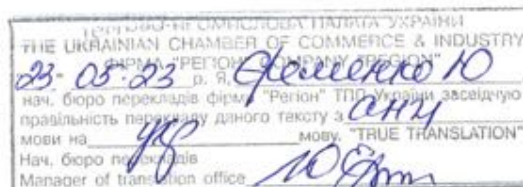 ТОРГОВО-ПРОМИСЛОВА ПАЛАТА УКРАЇНИ
THE UKRAINIAN CHAMBER OF COMMERCE & INDUSTRY
ФІРМА "РЕГІОН" COMPANY "REGION"
23. 05. 23 р. Я, Єременко Ю
нач. бюро перекладів фірми "Регіон" ТПП України засвідчую
правільність перекладу даного тексту з англ
мови на укр мову. "TRUE TRANSLATION"
Нач. бюро перекладів
Manager of translation office